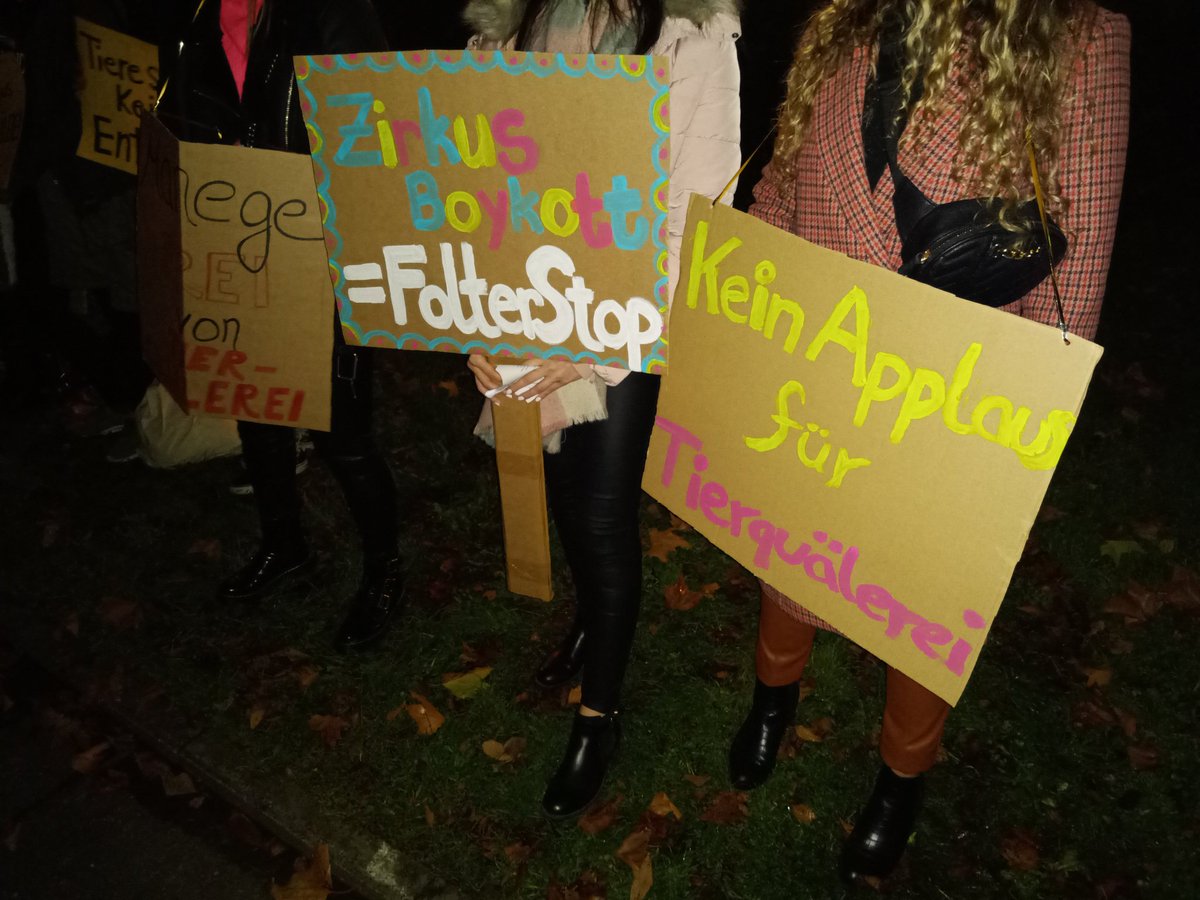 Tiere s
Kei
Ent
nege
REI
von
ER-
LEREI
Zirkus
Boykott
=FolterStop
Kein Applaus
für
Tierquälerei